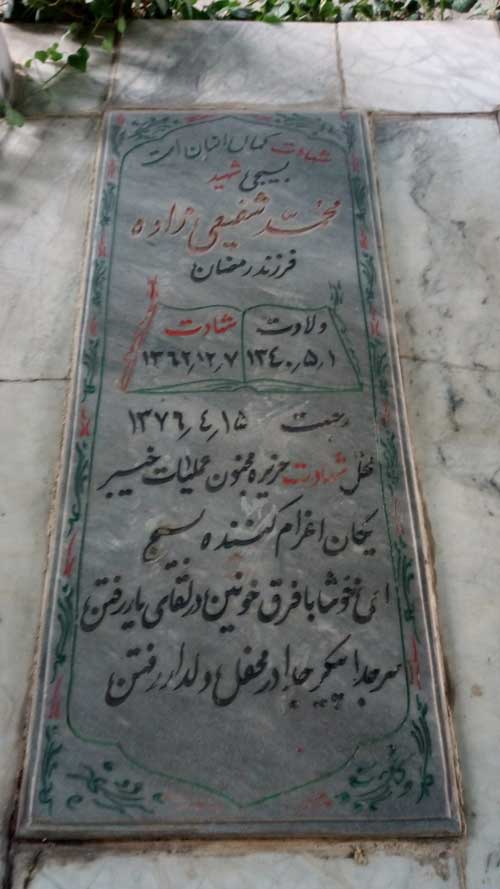 شهادت کمال انسان است
بسیجی شهید
محمد شفیعی زاده
فرزند رمضان
ولادت شهادت
۱۳٤۰٫۵٫۱ ۱۳۶۲٫۱۲٫۷
رجعت ۱۳۷۶٫٤٫۱۵
محل شهادت جزیره مجنون عملیات خیبر
یگان اعزام کننده بسیج
ای خوشا با فرق خونین در لقای یار رفتن
سر جدا پیکر جدا در محفل دلدار رفتن